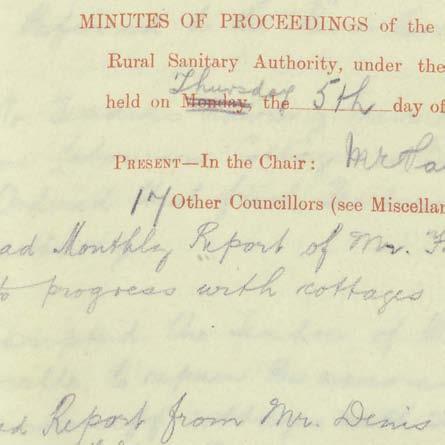 MINUTES OF PROCEEDINGS of the
Rural Sanitary Authority, under the
Thursday
held on Monday, the 5th day of
PRESENT—In the Chair: Mr
17 Other Councillors (see Miscellan
ad Monthly Report of Mr. F
to progress with cottages
ad Report from Mr. Denis